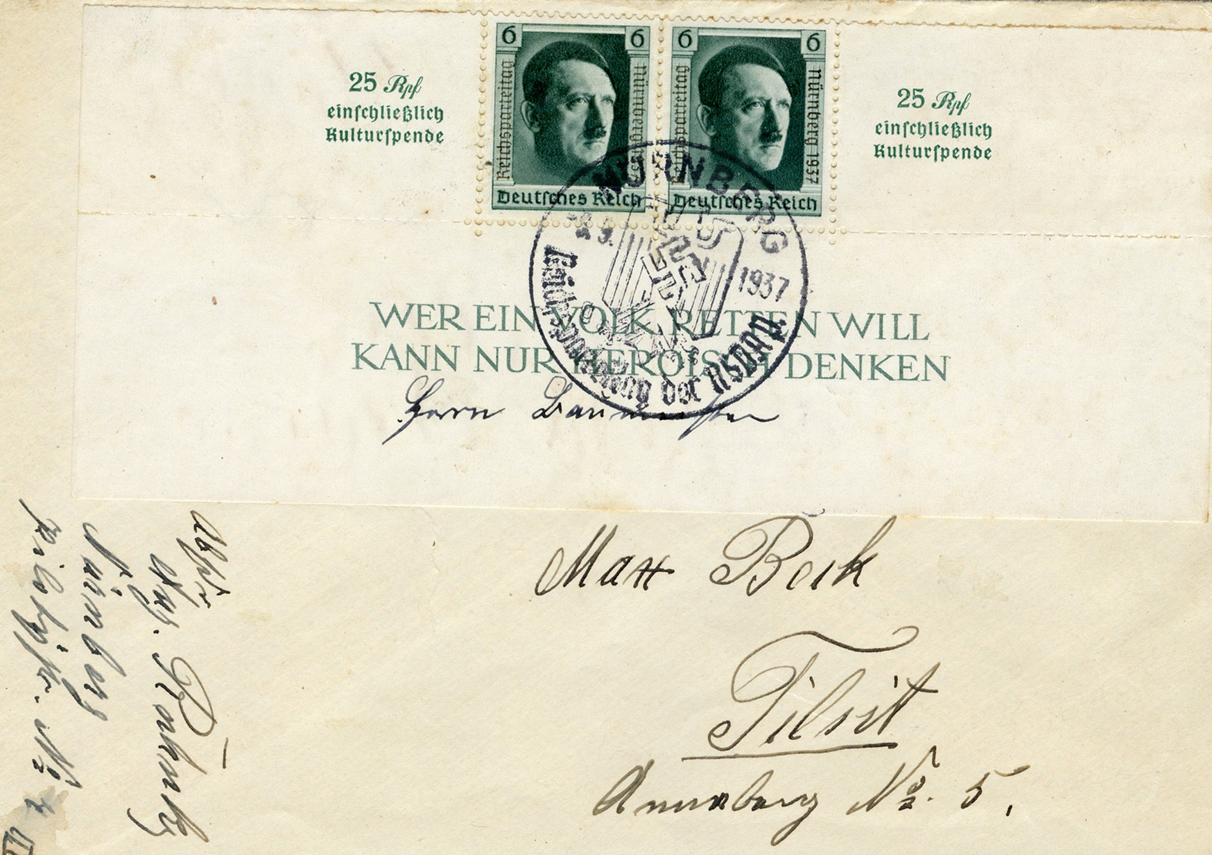 6 6 6 6
Reichsparteitag Nürnberg 1937
Reichsparteitag Nürnberg 1937
Deutsches Reich Deutsches Reich
25 Rpf
einschließlich
Kulturspende
25 Rpf
einschließlich
Kulturspende
NÜRNBERG
9. 1937
Reichsparteitag der NSDAP
WER EIN VOLK RETTEN WILL
KANN NUR HEROISCH DENKEN
Herrn Baumeister
Max Beik
Tilsit
Annaberg No. 5.
Nürnberg